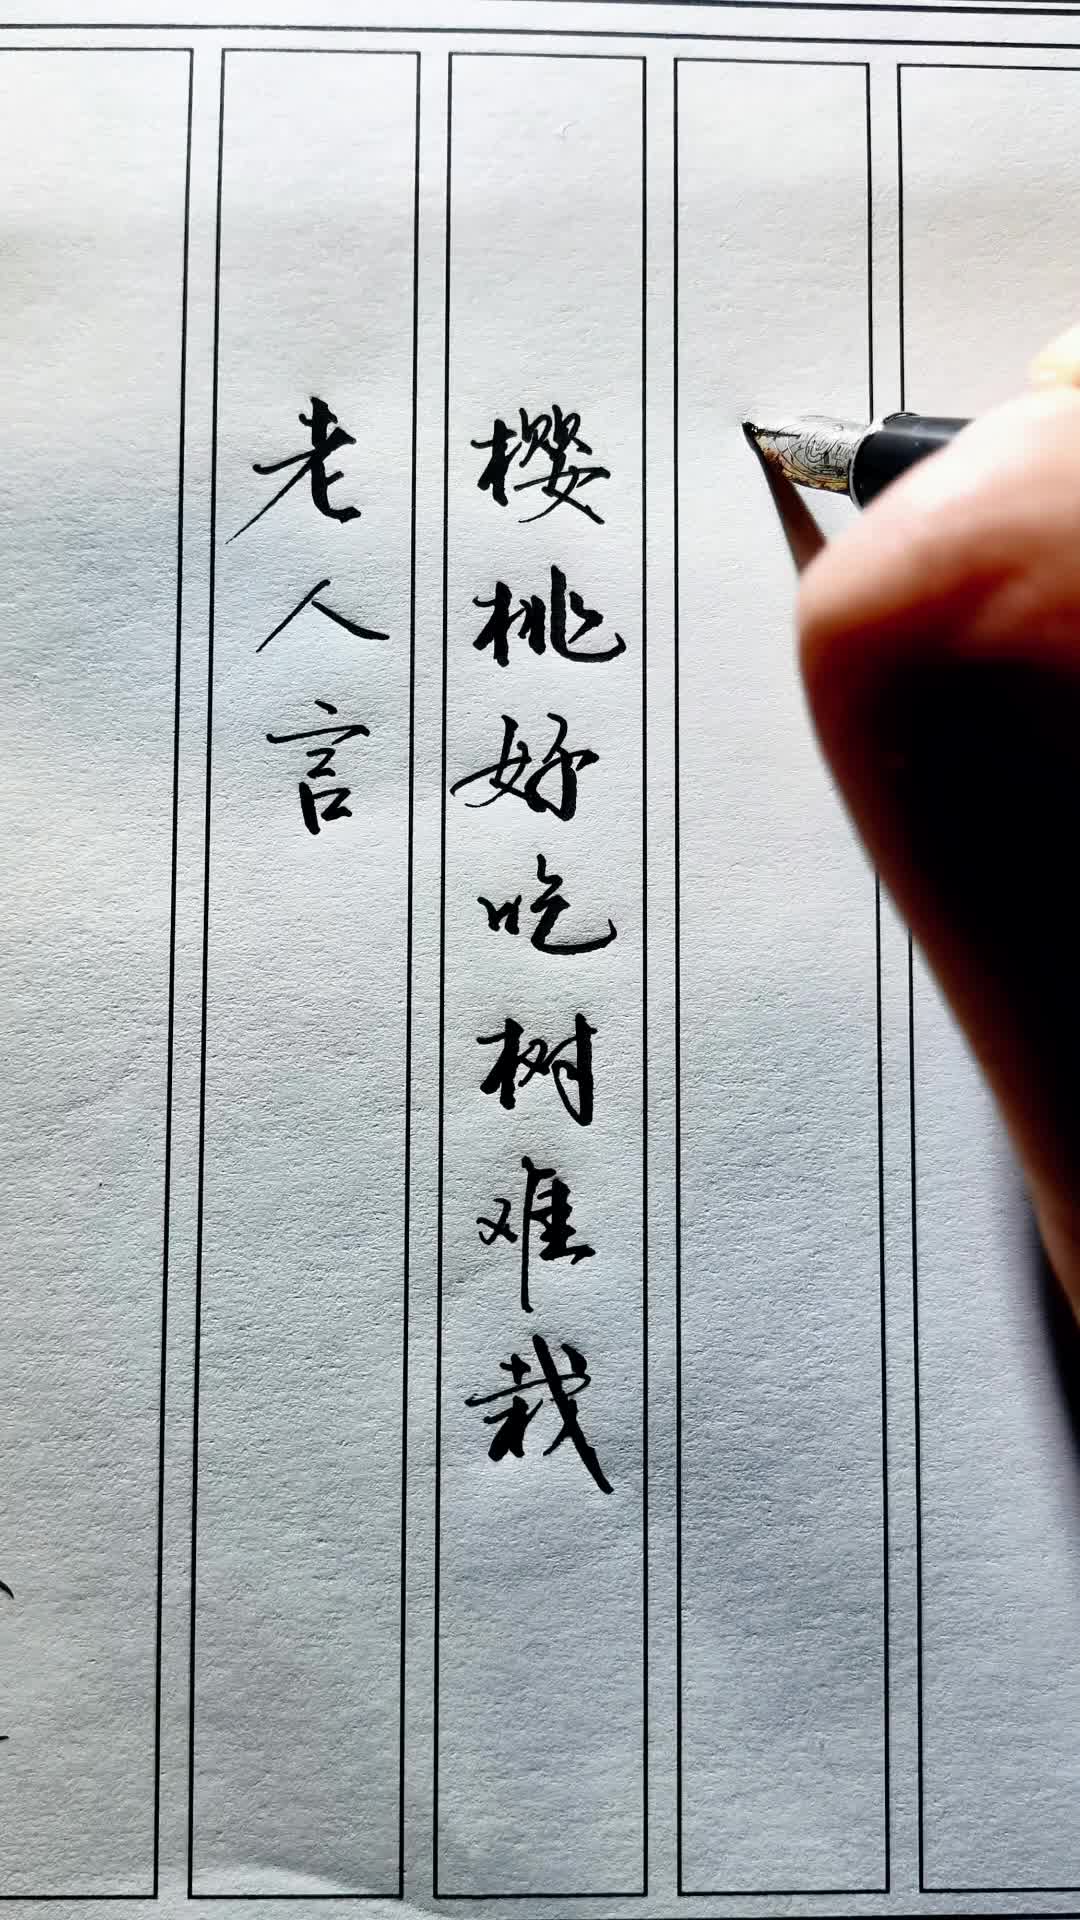 老人言
樱桃好吃树难栽